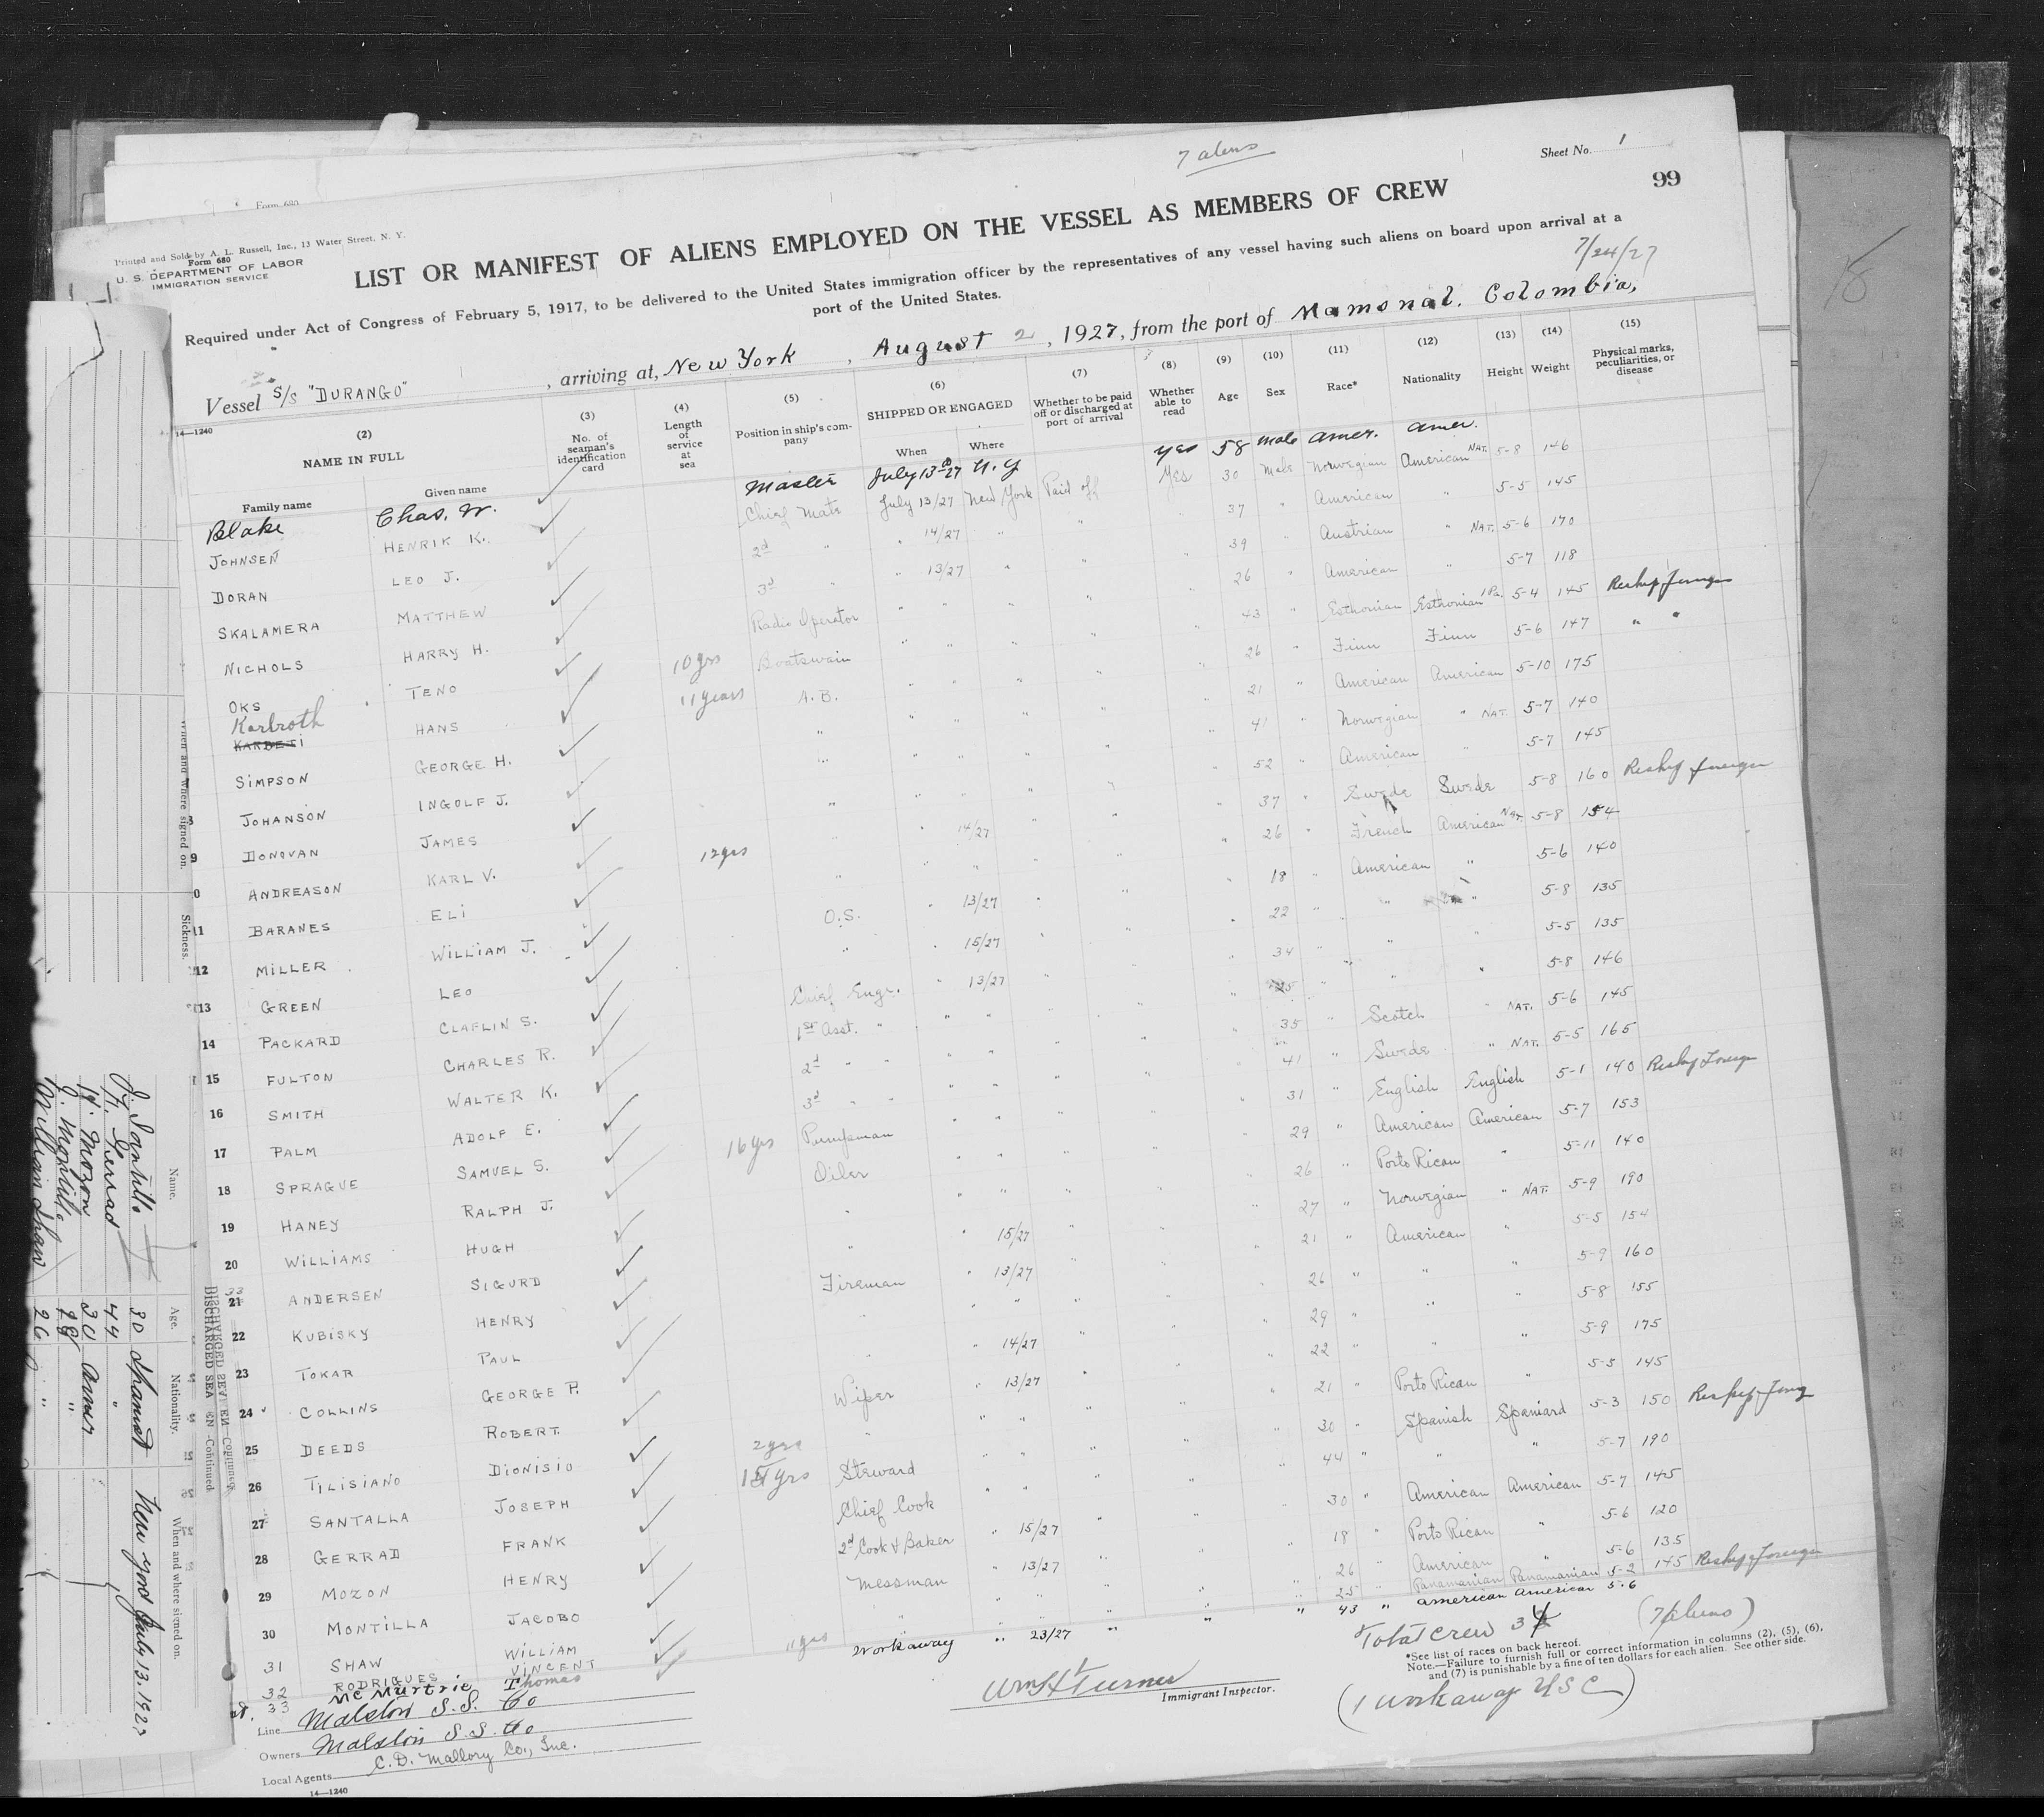 7 aliens
Sheet No. 1
99
Form 680
Printed and Sold by A. L. Russell, Inc., 13 Water Street, N. Y.
Form 680
U. S. DEPARTMENT OF LABOR
IMMIGRATION SERVICE
LIST OR MANIFEST OF ALIENS EMPLOYED ON THE VESSEL AS MEMBERS OF CREW
Required under Act of Congress of February 5, 1917, to be delivered to the United States immigration officer by the representatives of any vessel having such aliens on board upon arrival at a
port of the United States.
7/24/27
Vessel S/S "DURANGO", arriving at, New York, August 2, 1927, from the port of Mamonal, Colombia,
14—1240
(2) (3) (4) (5) (6) (7) (8) (9) (10) (11) (12) (13) (14) (15)
NAME IN FULL No. of seaman's identification card Length of service at sea Position in ship's company SHIPPED OR ENGAGED Whether to be paid off or discharged at port of arrival Whether able to read Age Sex Race* Nationality Height Weight Physical marks, peculiarities, or disease
Family name Given name When Where
Blake Chas. W. Master July 13-27 N.Y yes 58 male Amer. Amer.
JOHNSEN HENRIK K. Chief Mate July 13/27 New York Paid off Yes 30 Male Norwegian American NAT. 5-8 146
DORAN LEO J. 2d " " 14/27 " " " 37 " American " 5-5 145
SKALAMERA MATTHEW 3d " " 13/27 " " " 39 " Austrian " NAT. 5-6 170
NICHOLS HARRY H. Radio Operator " " " " " 26 " American " 5-7 118
OKS TENO 10 yrs Boatswain " " " " " 43 " Esthonian Esthonian 1 Pa. 5-4 145 Reship foreign
Karlroth KARBETI HANS 11 years A.B. " " " " " 26 " Finn Finn 5-6 147 " "
SIMPSON GEORGE H. " " " " " " 21 " American American 5-10 175
8 JOHANSON INGOLF J. " " " " " " 41 " Norwegian " NAT. 5-7 140
9 DONOVAN JAMES " " " " " " 52 " American " 5-7 145
0 ANDREASON KARL V. 12 yrs " " " " " " 37 " Swede Swede 5-8 160 Reship foreign
11 BARANES ELI " " 14/27 " " " 26 " French American Nat. 5-8 154
12 MILLER WILLIAM J. O.S. " 13/27 " " " 18 " American " 5-6 140
13 GREEN LEO " " 15/27 " " " 22 " " " 5-8 135
14 PACKARD CLAFLIN S. Chief Engr. " 13/27 " " " 34 " " " 5-5 135
15 FULTON CHARLES R. 1st Asst. " " " " " " 25 " " " 5-8 146
16 SMITH WALTER K. 2d " " " " " " " 35 " Scotch " NAT. 5-6 145
17 PALM ADOLF E. 3d " " " " " " " 41 " Swede " NAT. 5-5 165
18 SPRAGUE SAMUEL S. 16 yrs Pumpman " " " " " 31 " English English 5-1 140 Reship Foreign
19 HANEY RALPH J. Oiler " " " " " 29 " American American 5-7 153
20 WILLIAMS HUGH " " " " " " 26 " Porto Rican " 5-11 140
21 ANDERSEN SIGURD " " 15/27 " " " 27 " Norwegian " NAT. 5-9 190
22 KUBISKY HENRY Fireman " 13/27 " " " 21 " American " 5-5 154
23 TOKAR PAUL " " " " " " 26 " " " 5-9 160
24 COLLINS GEORGE P. " " 14/27 " " " 29 " " " 5-8 155
25 DEEDS ROBERT Wiper " 13/27 " " " 22 " " " 5-9 175
26 TILISIANO DIONISIO " " " " " " 21 " Porto Rican " 5-5 145
27 SANTALLA JOSEPH 2 yrs Steward " " " " " 30 " Spanish Spaniard 5-3 150 Reship Foreign
28 GERRAD FRANK 15 yrs Chief Cook " " " " " 44 " " " 5-7 190
29 MOZON HENRY 2d Cook & Baker " 15/27 " " " 30 " American American 5-7 145
30 MONTILLA JACOBO Messman " 13/27 " " " 18 " Porto Rican " 5-6 120
31 SHAW WILLIAM " " " " " " 26 " American " 5-6 135
32 RODRIGUES VINCENT 11 yrs " " " " " " 25 " Panamanian Panamanian 5-2 145 Reship Foreign
33 McMurtrie Thomas Workaway " 23/27 " " " 43 " American American 5-6
Total crew 34 (7 aliens)
Line Malston S.S. Co
Owners Malston S.S. Co
Local Agents C. D. Mallory Co., Inc.
14—1240
Wm H Turner
Immigrant Inspector.
*See list of races on back hereof.
Note.—Failure to furnish full or correct information in columns (2), (5), (6),
and (7) is punishable by a fine of ten dollars for each alien. See other side.
(1 workaway USC)
When and where signed on.
Sickness.
DISCHARGED SEAMEN—Continued
Name. Age. Nationality. When and where signed on.
J. Santilla 30 Spanish New York July 13, 1927
F. Gerrad 44 "
H. Mozon 30 Amer
J. Montilla 18 "
William Shaw 26 "